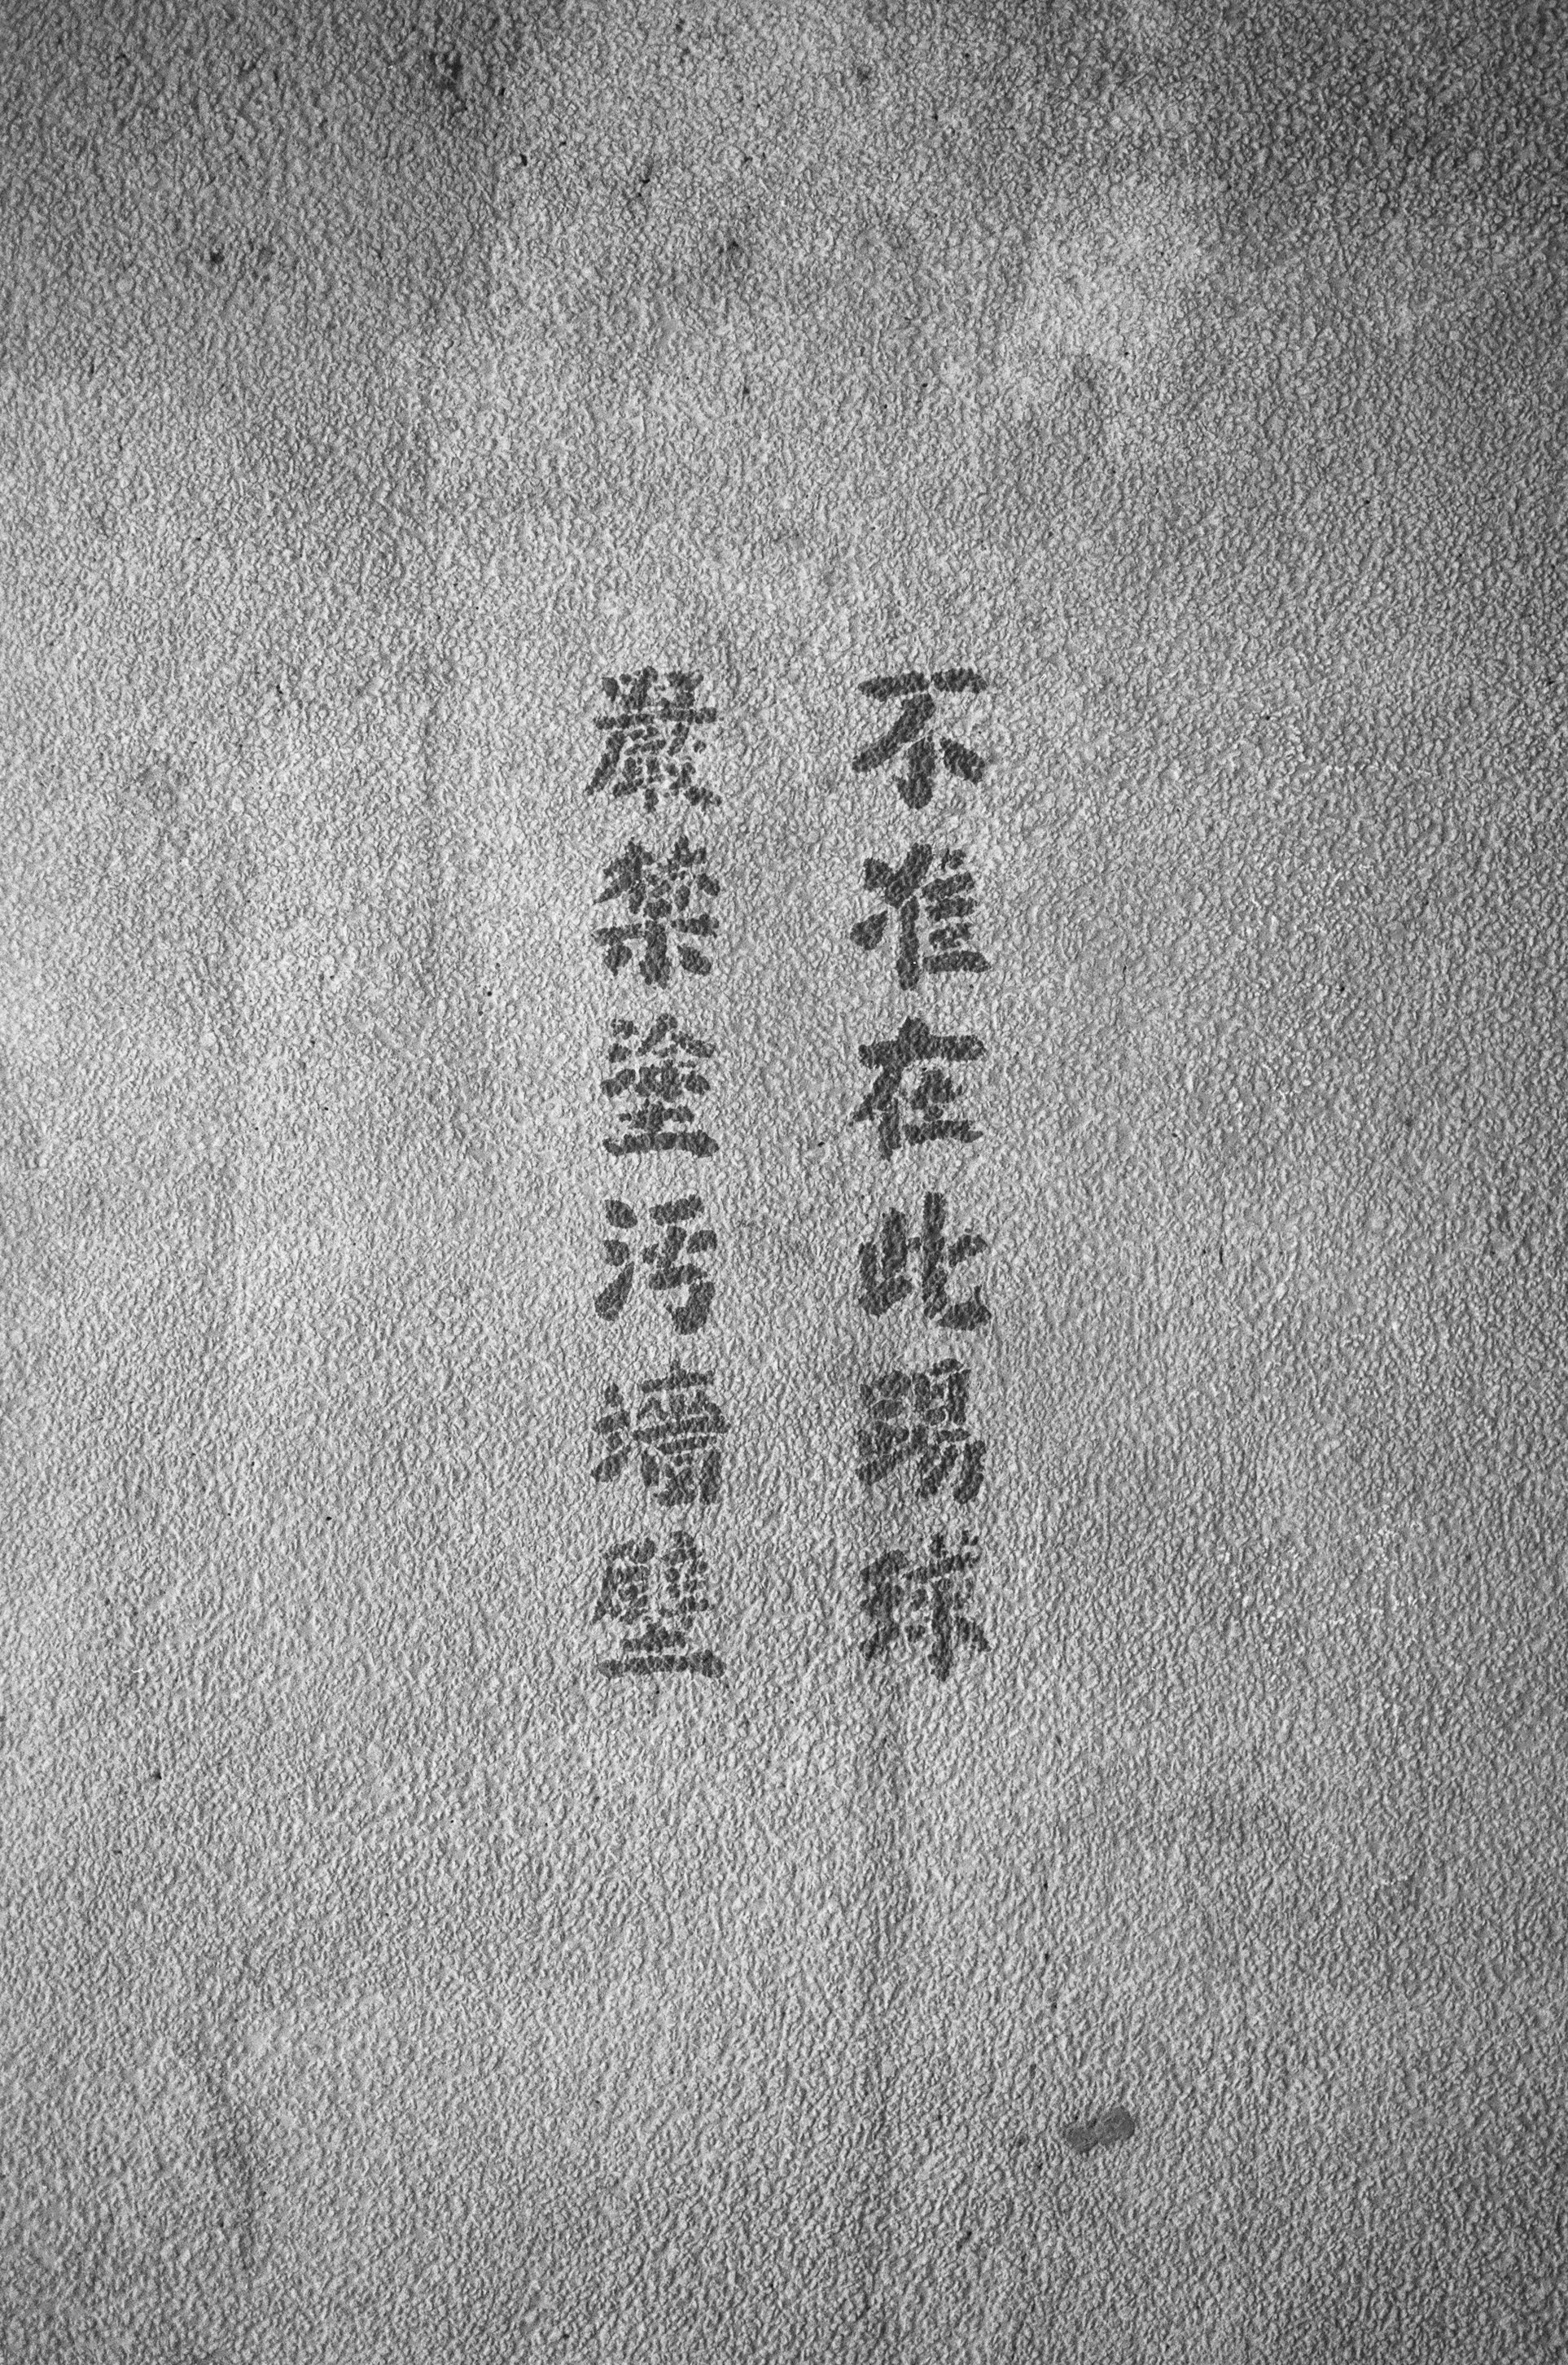 不准在此踢球
嚴禁塗污墻壁